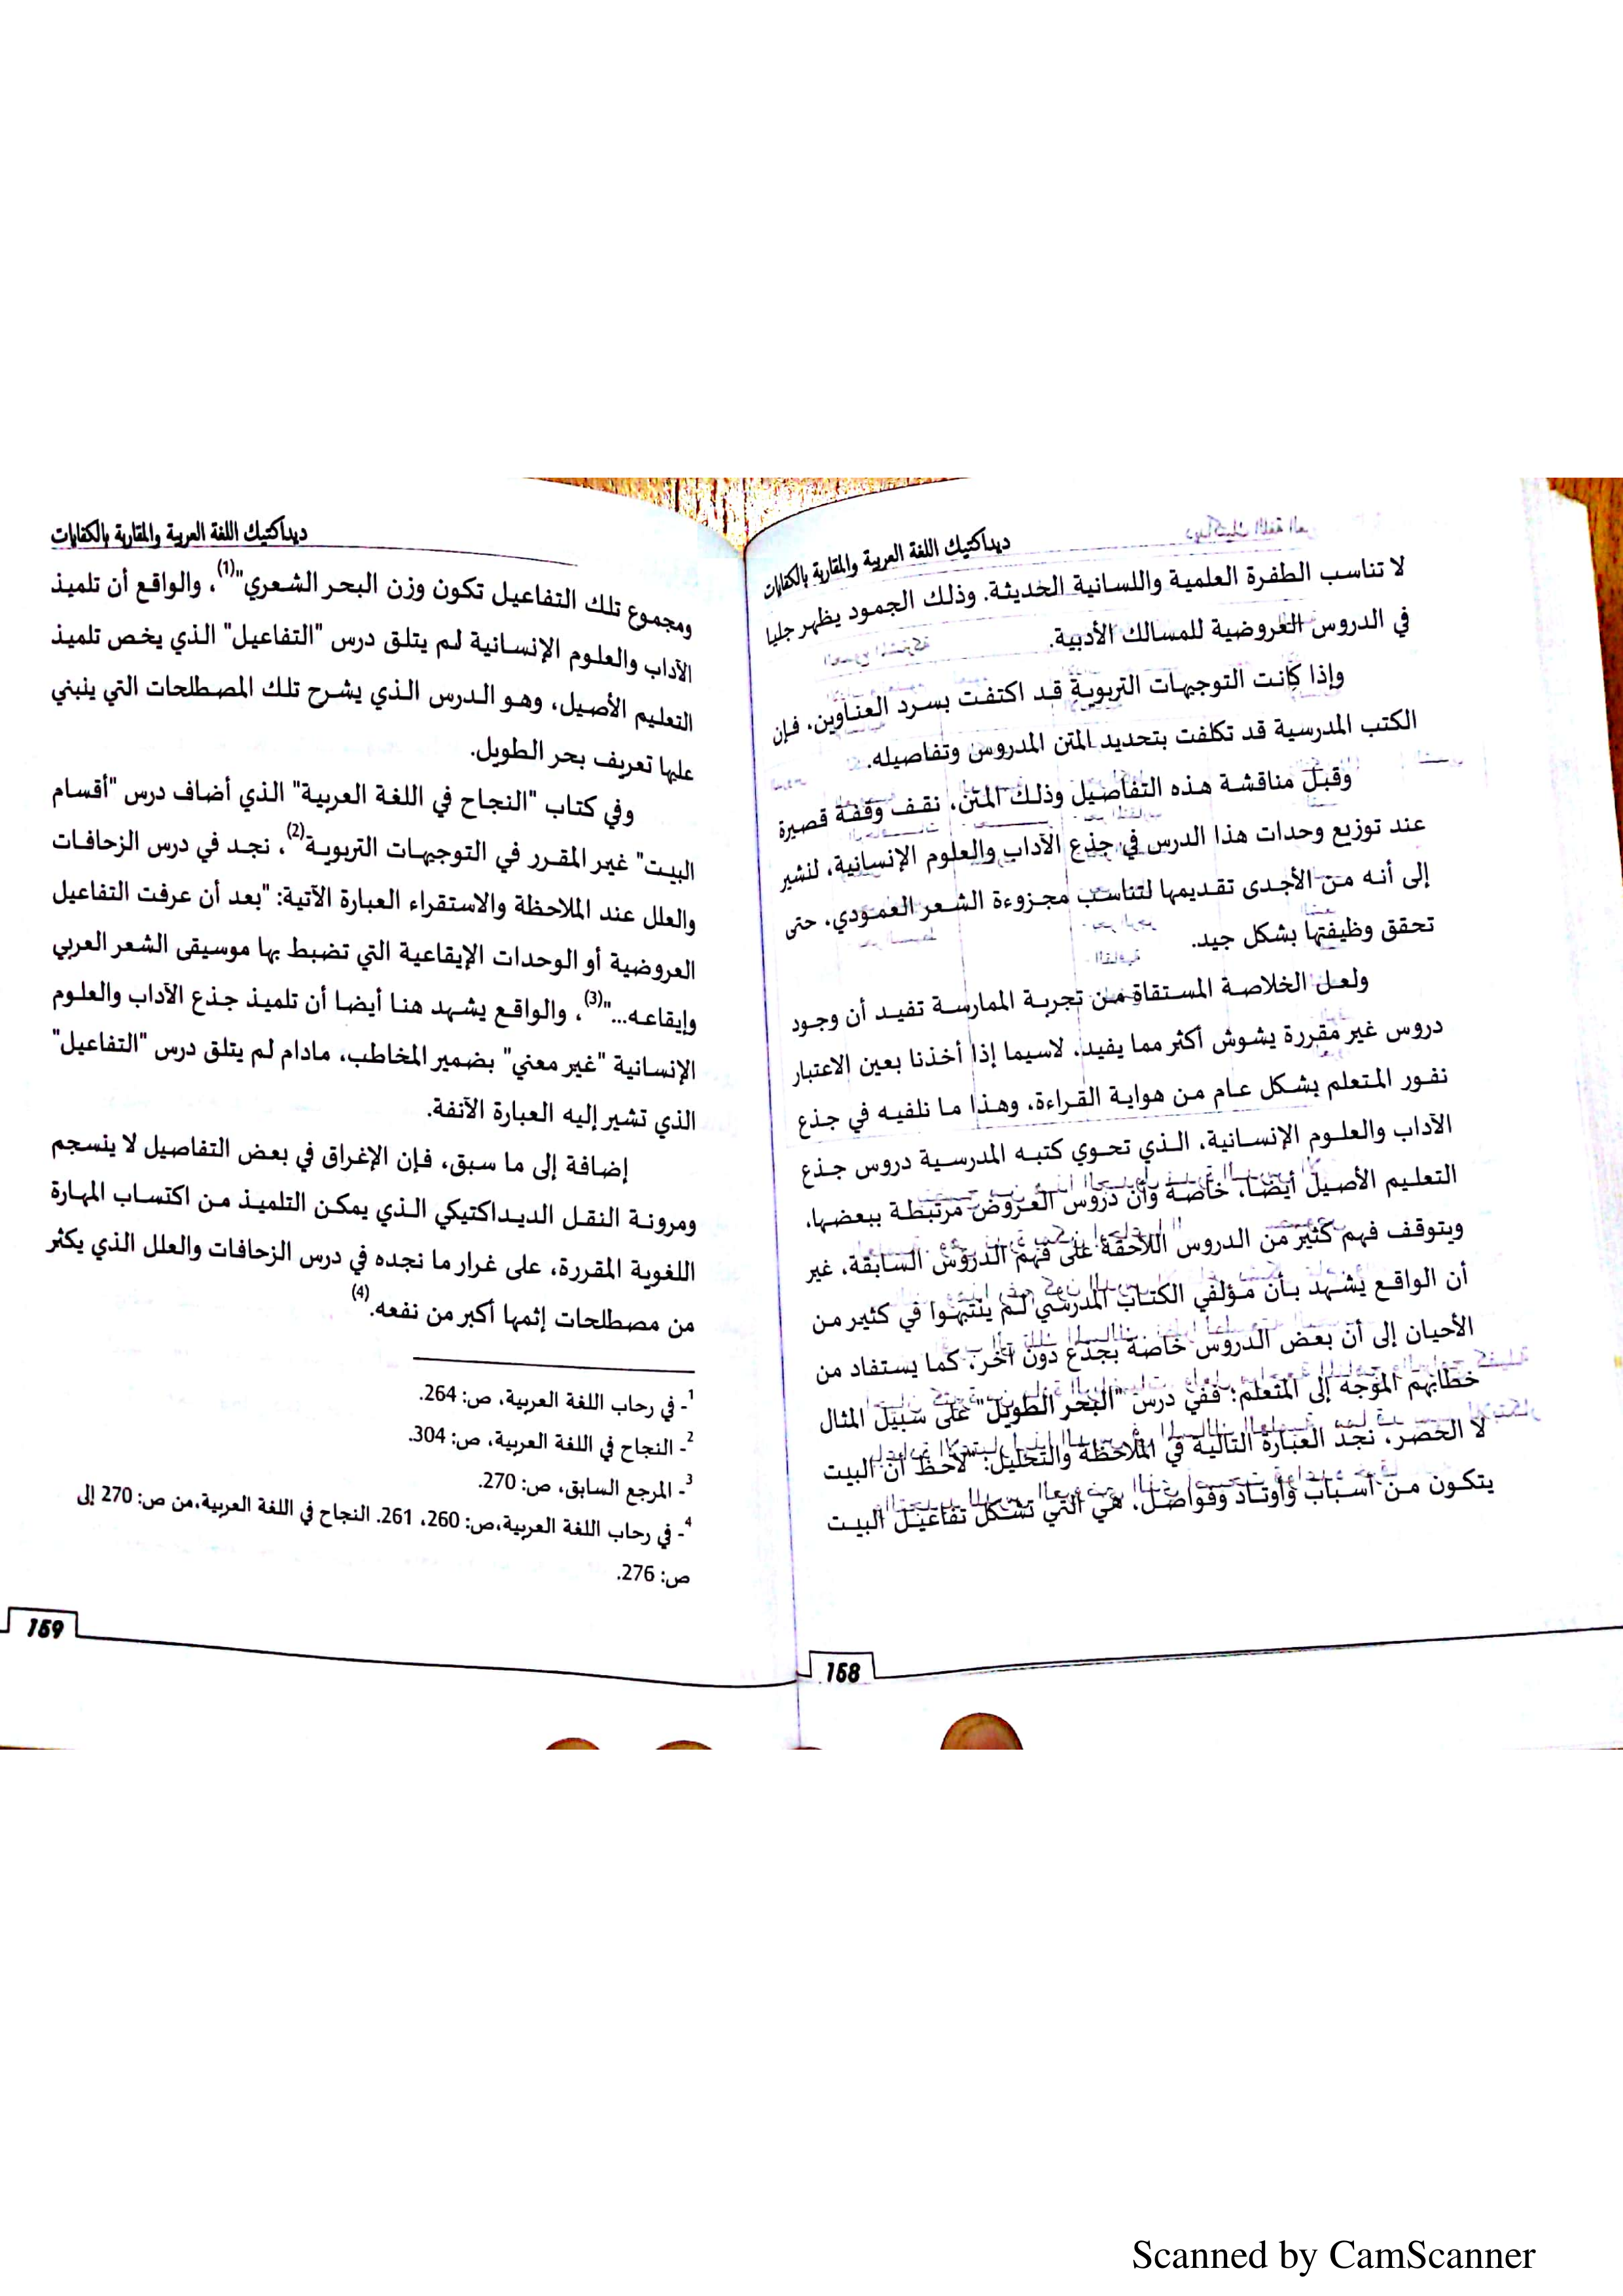 ديداكتيك اللغة العربية والمقاربة بالكفايات
لا تناسب الطفرة العلمية واللسانية الحديثة. وذلك الجمود يظهر جليا
في الدروس العروضية للمسالك الأدبية.
وإذا كانت التوجيهات التربوية قد اكتفت بسرد العناوين، فإن
الكتب المدرسية قد تكلفت بتحديد المتن المدروس وتفاصيله.
وقبل مناقشة هذه التفاصيل وذلك المتن، نقف وقفة قصيرة
عند توزيع وحدات هذا الدرس في جذع الآداب والعلوم الإنسانية، لنشير
إلى أنه من الأجدى تقديمها لتناسب مجزوءة الشعر العمودي، حتى
تحقق وظيفتها بشكل جيد.
ولعل الخلاصة المستقاة من تجربة الممارسة تفيد أن وجود
دروس غير مقررة يشوش أكثر مما يفيد، لاسيما إذا أخذنا بعين الاعتبار
نفور المتعلم بشكل عام من هواية القراءة، وهذا ما نلفيه في جذع
الآداب والعلوم الإنسانية، الذي تحوي كتبه المدرسية دروس جذع
التعليم الأصيل أيضا، خاصة وأن دروس العروض مرتبطة ببعضها،
ويتوقف فهم كثير من الدروس اللاحقة على فهم الدروس السابقة، غير
أن الواقع يشهد بأن مؤلفي الكتاب المدرسي لم ينتبهوا في كثير من
الأحيان إلى أن بعض الدروس خاصة بجذع دون آخر، كما يستفاد من
خطابهم الموجه إلى المتعلم: ففي درس "البحر الطويل" على سبيل المثال
لا الحصر، نجد العبارة التالية في الملاحظة والتحليل: "لاحظ أن البيت
يتكون من أسباب وأوتاد وفواصل، هي التي تشكل تفاعيل البيت
158
ديداكتيك اللغة العربية والمقاربة بالكفايات
ومجموع تلك التفاعيل تكون وزن البحر الشعري"(1)، والواقع أن تلميذ
الآداب والعلوم الإنسانية لم يتلق درس "التفاعيل" الذي يخص تلميذ
التعليم الأصيل، وهو الدرس الذي يشرح تلك المصطلحات التي ينبني
عليها تعريف بحر الطويل.
وفي كتاب "النجاح في اللغة العربية" الذي أضاف درس "أقسام
البيت" غير المقرر في التوجيهات التربوية(2)، نجد في درس الزحافات
والعلل عند الملاحظة والاستقراء العبارة الآتية: "بعد أن عرفت التفاعيل
العروضية أو الوحدات الإيقاعية التي تضبط بها موسيقى الشعر العربي
وإيقاعه..."(3)، والواقع يشهد هنا أيضا أن تلميذ جذع الآداب والعلوم
الإنسانية "غير معني" بضمير المخاطب، مادام لم يتلق درس "التفاعيل"
الذي تشير إليه العبارة الآنفة.
إضافة إلى ما سبق، فإن الإغراق في بعض التفاصيل لا ينسجم
ومرونة النقل الديداكتيكي الذي يمكن التلميذ من اكتساب المهارة
اللغوية المقررة، على غرار ما نجده في درس الزحافات والعلل الذي يكثر
من مصطلحات إثمها أكبر من نفعه.(4)
1- في رحاب اللغة العربية، ص: 264.
2- النجاح في اللغة العربية، ص: 304.
3- المرجع السابق، ص: 270.
4- في رحاب اللغة العربية،ص: 260، 261. النجاح في اللغة العربية،من ص: 270 إلى
ص: 276.
159
Scanned by CamScanner